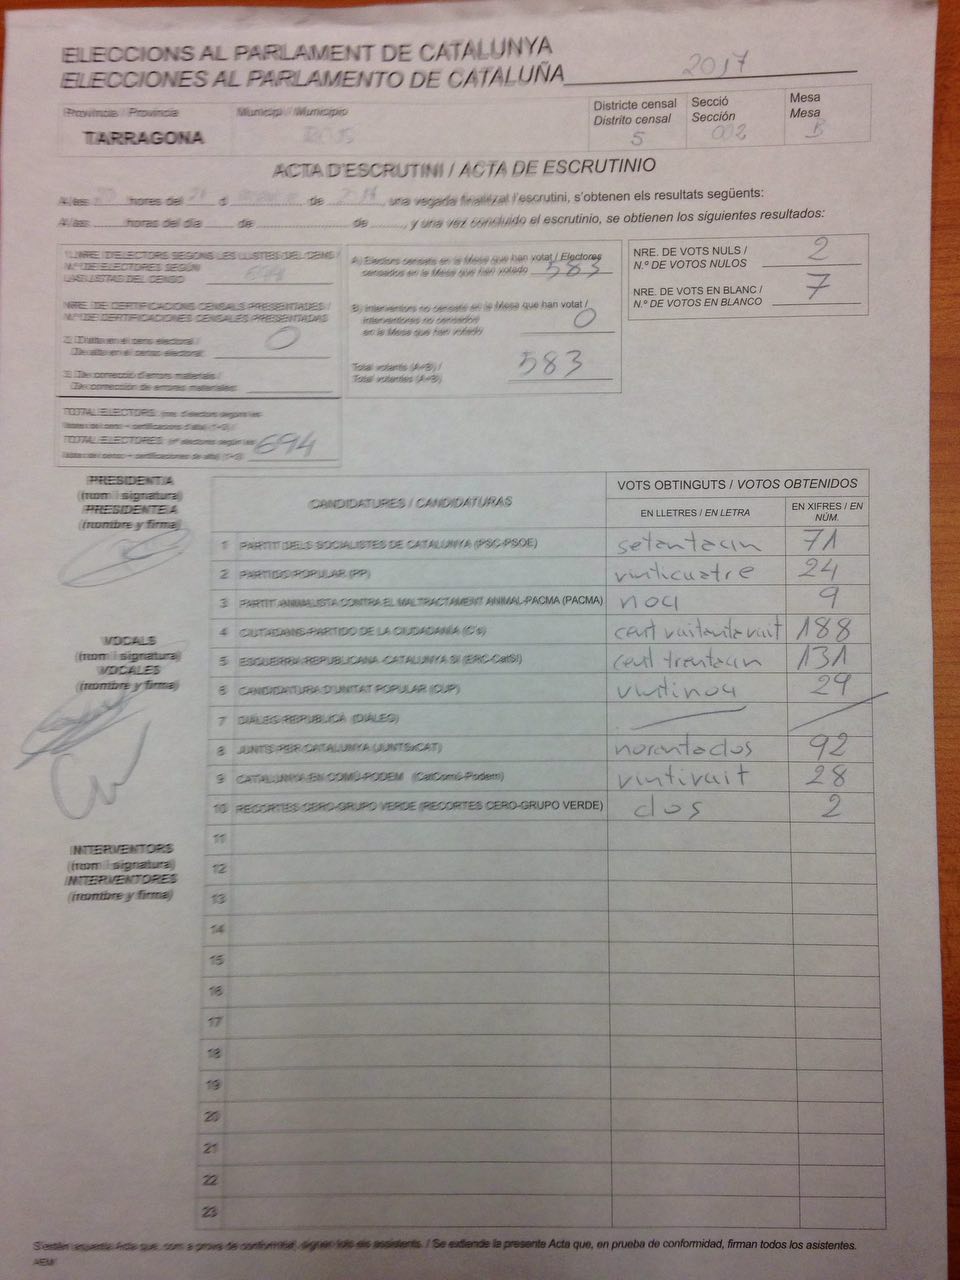 ELECCIONS AL PARLAMENT DE CATALUNYA
ELECCIONES AL PARLAMENTO DE CATALUÑA 2017
Província / Provincia
TARRAGONA
Municipi / Municipio
Districte censal
Distrito censal
5
Secció
Sección
002
Mesa
Mesa
B
ACTA D'ESCRUTINI / ACTA DE ESCRUTINIO
A les hores del d de , una vegada finalitzat l'escrutini, s'obtenen els resultats següents:
A las horas del día de de , y una vez concluido el escrutinio, se obtienen los siguientes resultados:
1) NRE. D'ELECTORS SEGONS LES LLISTES DEL CENS /
N.º DE ELECTORES SEGÚN
LAS LISTAS DEL CENSO 694
NRE. DE CERTIFICACIONS CENSALS PRESENTADES /
N.º DE CERTIFICACIONES CENSALES PRESENTADAS
2) D'alta en el cens electoral /
De alta en el censo electoral: 0
3) De correcció d'errors materials /
De corrección de errores materiales:
TOTAL ELECTORS: (nre. d'electors segons les
llistes del cens + certificacions d'alta) (1+2) /
TOTAL ELECTORES: (nº electores según las
listas del censo + certificaciones de alta) (1+2) 694
A) Electors censats en la Mesa que han votat / Electores
censados en la Mesa que han votado 583
B) Interventors no censats en la Mesa que han votat /
Interventores no censados
en la Mesa que han votado 0
Total votants (A+B) /
Total votantes (A+B) 583
NRE. DE VOTS NULS /
N.º DE VOTOS NULOS 2
NRE. DE VOTS EN BLANC /
N.º DE VOTOS EN BLANCO 7
PRESIDENT/A
(nom i signatura)
PRESIDENTE/A
(nombre y firma)
VOCALS
(nom i signatura)
VOCALES
(nombre y firma)
INTERVENTORS
(nom i signatura)
INTERVENTORES
(nombre y firma)
CANDIDATURES / CANDIDATURAS
VOTS OBTINGUTS / VOTOS OBTENIDOS
EN LLETRES / EN LETRA
EN XIFRES / EN
NÚM.
1 PARTIT DELS SOCIALISTES DE CATALUNYA (PSC-PSOE) setantaun 71
2 PARTIDO POPULAR (PP) vinticuatre 24
3 PARTIT ANIMALISTA CONTRA EL MALTRACTAMENT ANIMAL-PACMA (PACMA) nou 9
4 CIUTADANS-PARTIDO DE LA CIUDADANÍA (C's) cent vuitanta vuit 188
5 ESQUERRA REPUBLICANA-CATALUNYA SÍ (ERC-CatSí) cent trentaun 131
6 CANDIDATURA D'UNITAT POPULAR (CUP) vintinou 29
7 DIÀLEG REPUBLICÀ (DIÀLEG)
8 JUNTS PER CATALUNYA (JUNTSxCAT) norantados 92
9 CATALUNYA EN COMÚ-PODEM (CatComú-Podem) vintivuit 28
10 RECORTES CERO-GRUPO VERDE (RECORTES CERO-GRUPO VERDE) dos 2
11
12
13
14
15
16
17
18
19
20
21
22
23
S'estén aquesta Acta que, com a prova de conformitat, signen tots els assistents. / Se extiende la presente Acta que, en prueba de conformidad, firman todos los asistentes.